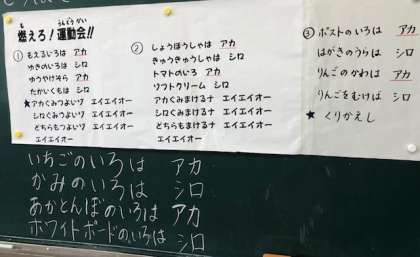 燃えろ！運動会!!
も うんどう かい
① もえるいろは アカ
ゆきのいろは シロ
ゆうやけそら アカ
たかいくもは シロ
★アカぐみつよいゾ エイエイオー
シロぐみつよいゾ エイエイオー
どちらもつよいゾ エイエイオー
エイエイオー
② しょうぼうしゃは アカ
きゅうきゅうしゃは シロ
トマトのいろ アカ
ソフトクリーム シロ
アカぐみまけるナ エイエイオー
シロぐみまけるナ エイエイオー
どちらもまけるナ エイエイオー
エイエイオー
③ ポストのいろは アカ
はがきのうらは シロ
りんごのかわは アカ
りんごをむけば シロ
★ くりかえし
いちごのいろは アカ
かみのいろは シロ
あかとんぼのいろは アカ
ホワイトボードのいろは シロ